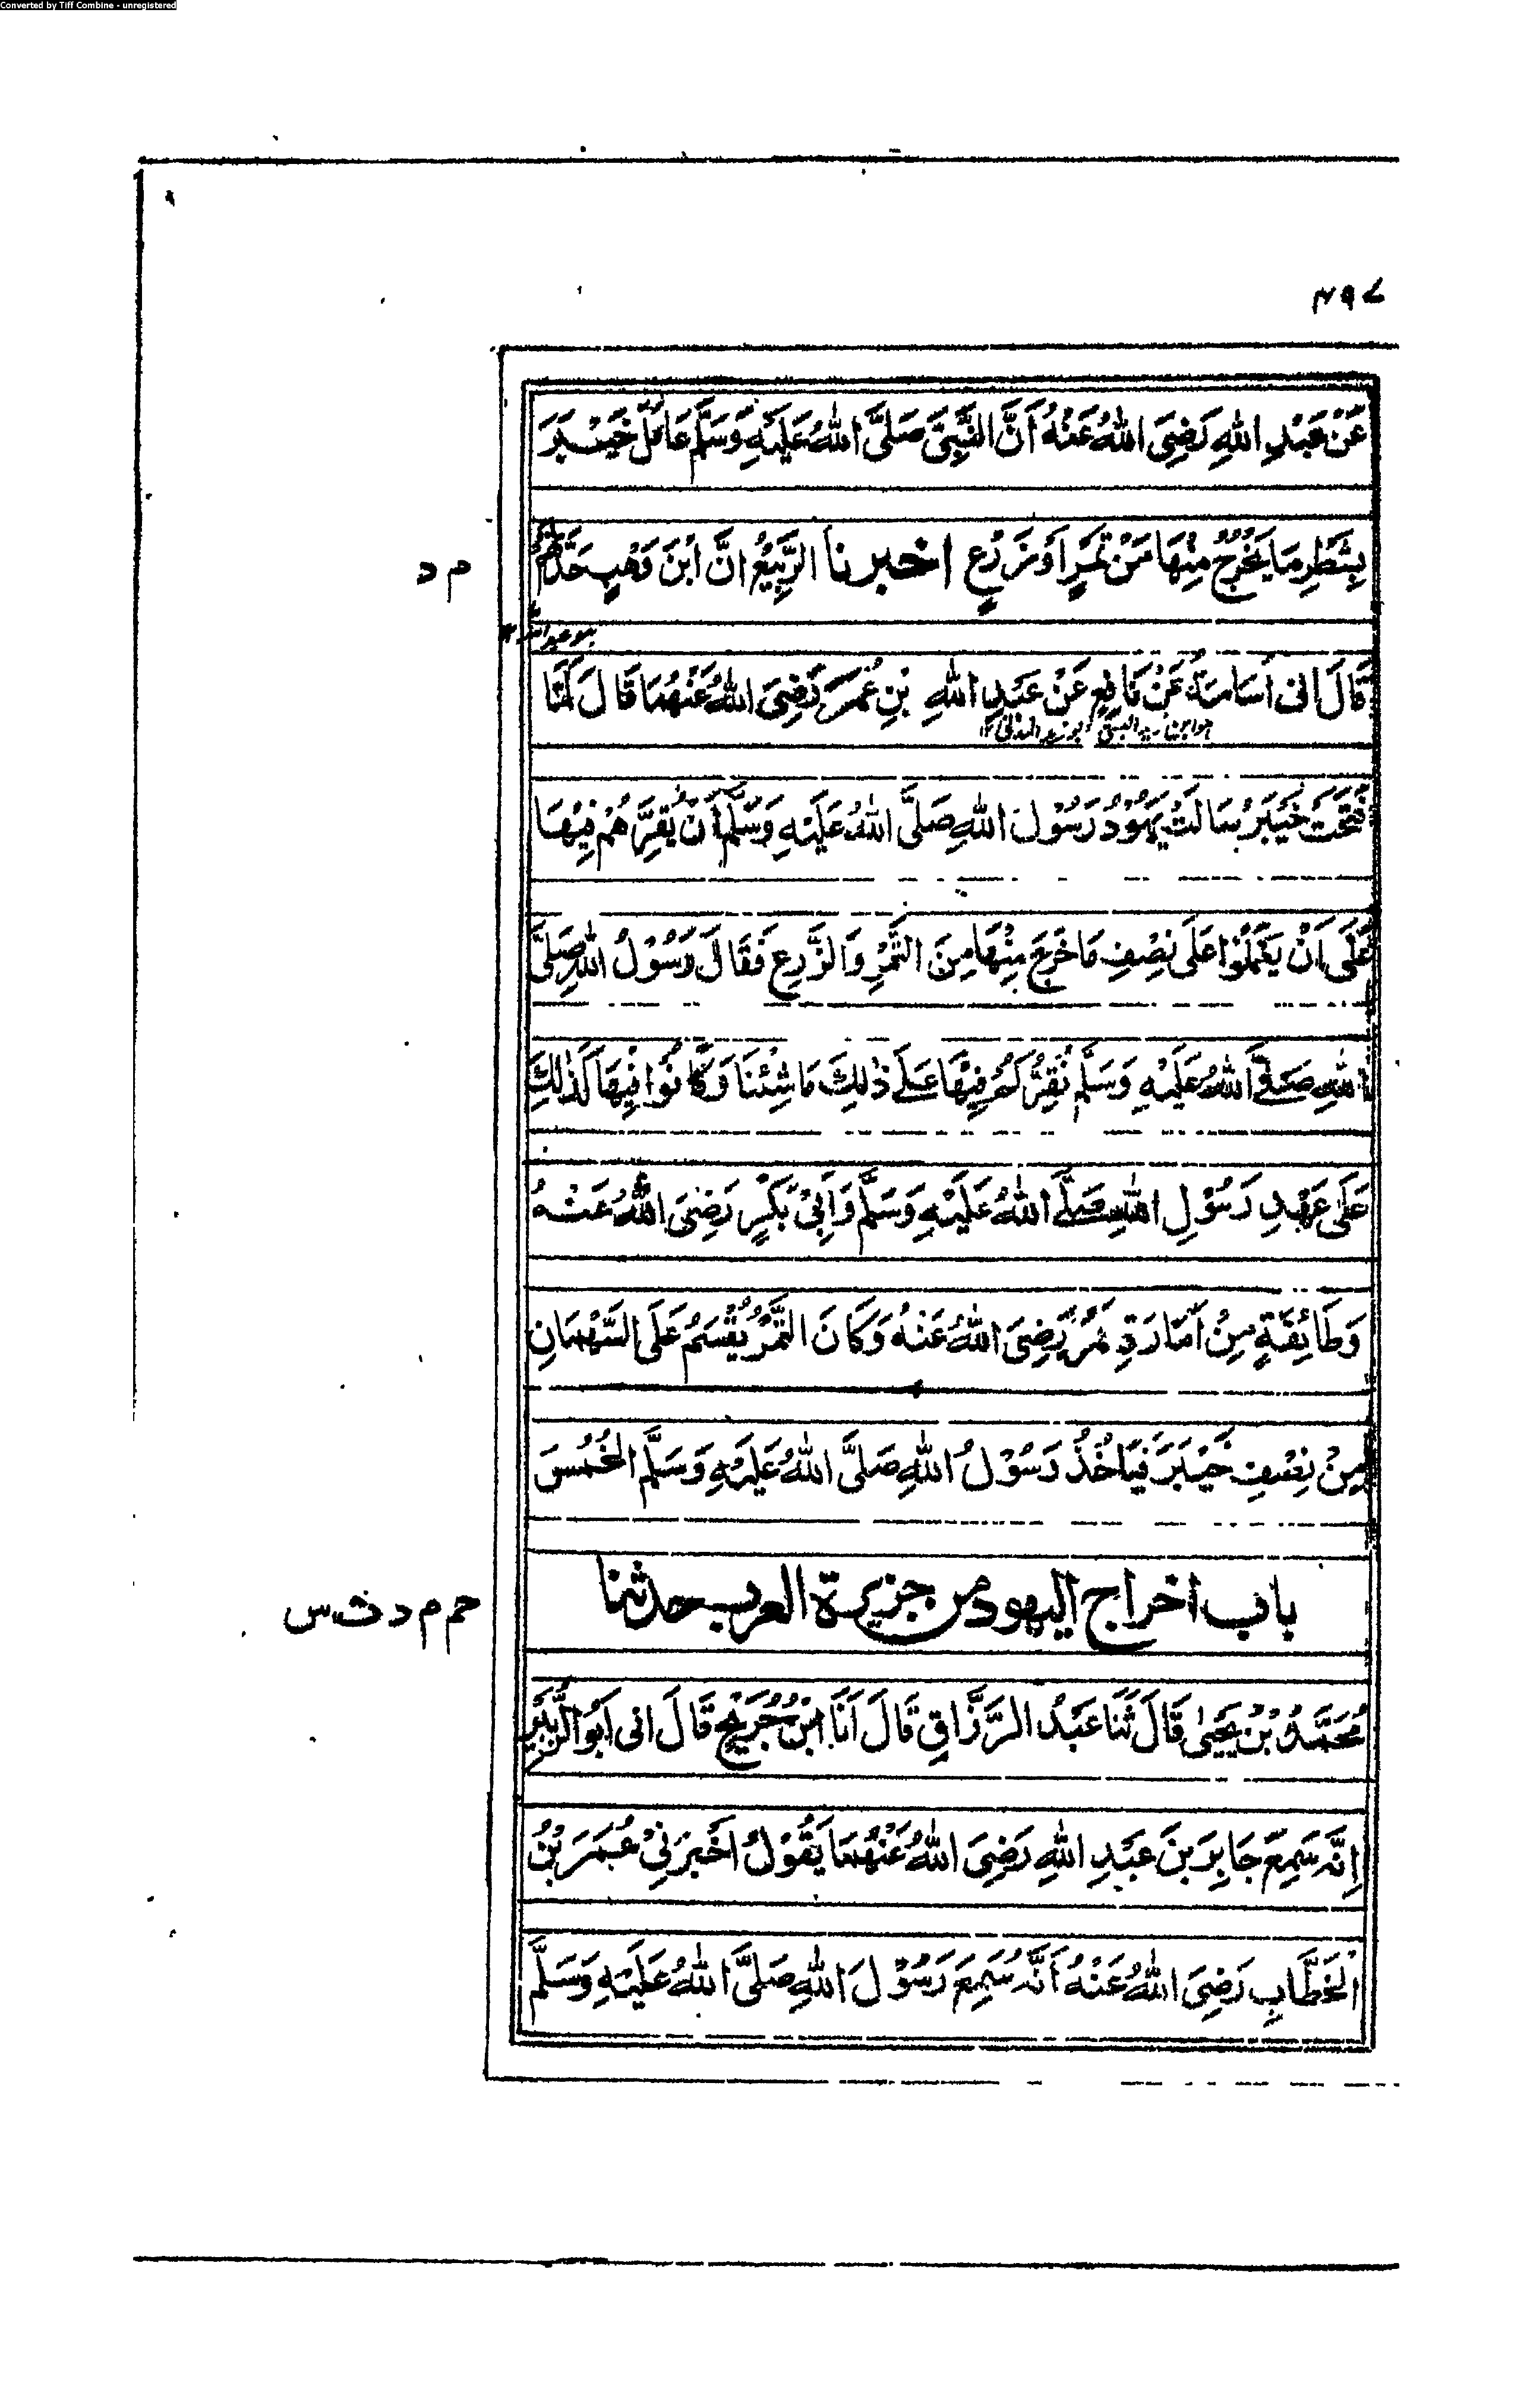 Converted by Tiff Combine - unregistered
٤٩٧
عَنْ عَبْدِ اللهِ رَضِيَ اللهُ عَنْهُ أَنَّ النَّبِيَّ صَلَّى اللهُ عَلَيْهِ وَسَلَّمَ عَامَلَ خَيْبَرَ
بِشَطْرِ مَا يَخْرُجُ مِنْهَا مِنْ تَمَرٍ اَوْ زَرْعٍ اخبرنا الرَّبِيْعُ انَّ ابْنَ وَهْبٍ حَدَّثَهُمْ
م د
هو عبد الله ١٢
قَالَ انى أُسَامَةُ عَنْ نَافِعٍ عَنْ عَبْدِ اللهِ بْنِ عُمَرَ رَضِيَ اللهُ عَنْهُمَا قَالَ لَمَّا
هو ابن زيد الليثي ابو زيد المدنى ١٢
فُتِحَتْ خَيْبَرُ سَالَتْ يَهُوْدُ رَسُوْلَ اللهِ صَلَّى اللهُ عَلَيْهِ وَسَلَّمَ أَنْ يُقِرَّهُمْ فِيْهَا
عَلَى اَنْ يَعْمَلُوْا عَلَى نِصْفِ مَا خَرَجَ مِنْهَا مِنَ التَّمْرِ وَالزَّرْعِ فَقَالَ رَسُوْلُ اللهِ صَلَّى
اللهِ صَلَّى اللهُ عَلَيْهِ وَسَلَّمَ نُقِرُّكُمْ فِيْهَا عَلَى ذٰلِكَ مَا شِئْنَا وَكَانُوْا فِيْهَا كَذٰلِكَ
عَلَى عَهْدِ رَسُوْلِ اللهِ صَلَّى اللهُ عَلَيْهِ وَسَلَّمَ وَاَبِيْ بَكْرٍ رَضِيَ اللهُ عَنْهُ
وَطَائِفَةٍ مِنْ اَمَارَةِ عُمَرَ رَضِيَ اللهُ عَنْهُ وَكَانَ التَّمْرُ يُقْسَمُ عَلَى السُّهْمَانِ
مِنْ نِصْفِ خَيْبَرَ فَيَاخُذُ رَسُوْلُ اللهِ صَلَّى اللهُ عَلَيْهِ وَسَلَّمَ الْخُمُسَ
باب اخراج اليهود من جزيرة العرب حدثنا
حم م د ت س
مُحَمَّدُ بْنُ يَحْيٰى قَالَ ثَنَا عَبْدُ الرَّزَّاقِ قَالَ اَنَا ابْنُ جُرَيْجٍ قَالَ انى اَبُو الزُّبَيْرِ
اِنَّهُ سَمِعَ جَابِرَ بْنَ عَبْدِ اللهِ رَضِيَ اللهُ عَنْهُمَا يَقُوْلُ اَخْبَرَنِيْ عُمَرُ بْنُ
الْخَطَّابِ رَضِيَ اللهُ عَنْهُ اَنَّهُ سَمِعَ رَسُوْلَ اللهِ صَلَّى اللهُ عَلَيْهِ وَسَلَّمَ